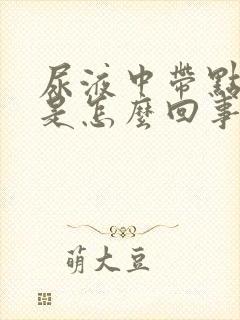 尿液中帶點
是怎麼回事
萌大豆